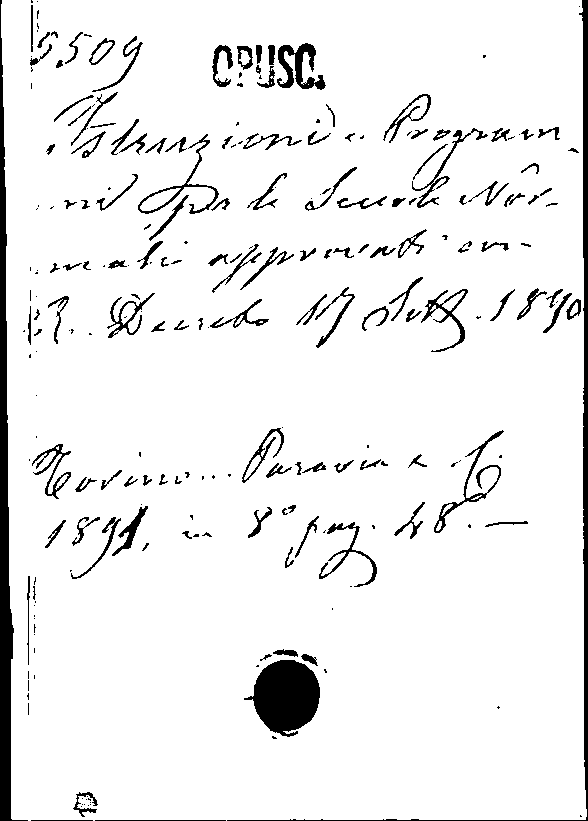 5509
OPUSC.
Istruzioni e Program-
mi per le Scuole Nor-
mali approvati con
R. Decreto 17 Sett. 1890
Torino. Paravia e C.
1891, in 8° pag. 48. —